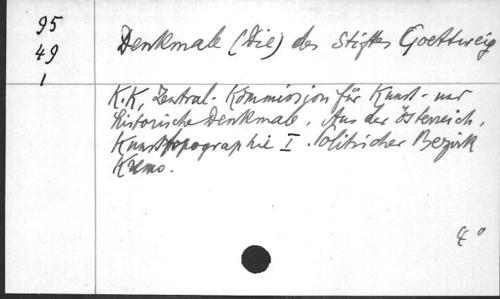 95
49
1
Denkmale (Die) des Stiftes Goettweig
K.K. Zentral-Kommission für Kunst- und
historische Denkmale. Aus der Österreich.
Kunsttopographie I. Politischer Bezirk
Krems.
4°